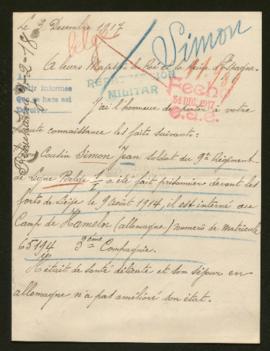 Le 3 Decembre 1917
Simon
A leurs Majestés le Roi et la Reine d'Espagne
REPATRIACION
MILITAR
Fecho
31 DIC. 1917
J'ai l'honneur de porter à votre
haute connaissance les faits suivants:
Mon Cousin Simon Jean Soldat du 9e Régiment
de Ligne Belge a été fait prisonnier devant les
forts de Liège le 9 août 1914, il est interné au
Camp de Hameln (allemagne) numéro de Matricule
65194 3ème Compagnie.
Il était de santé délicate et son séjour en
allemagne n'a pas amélioré son état.